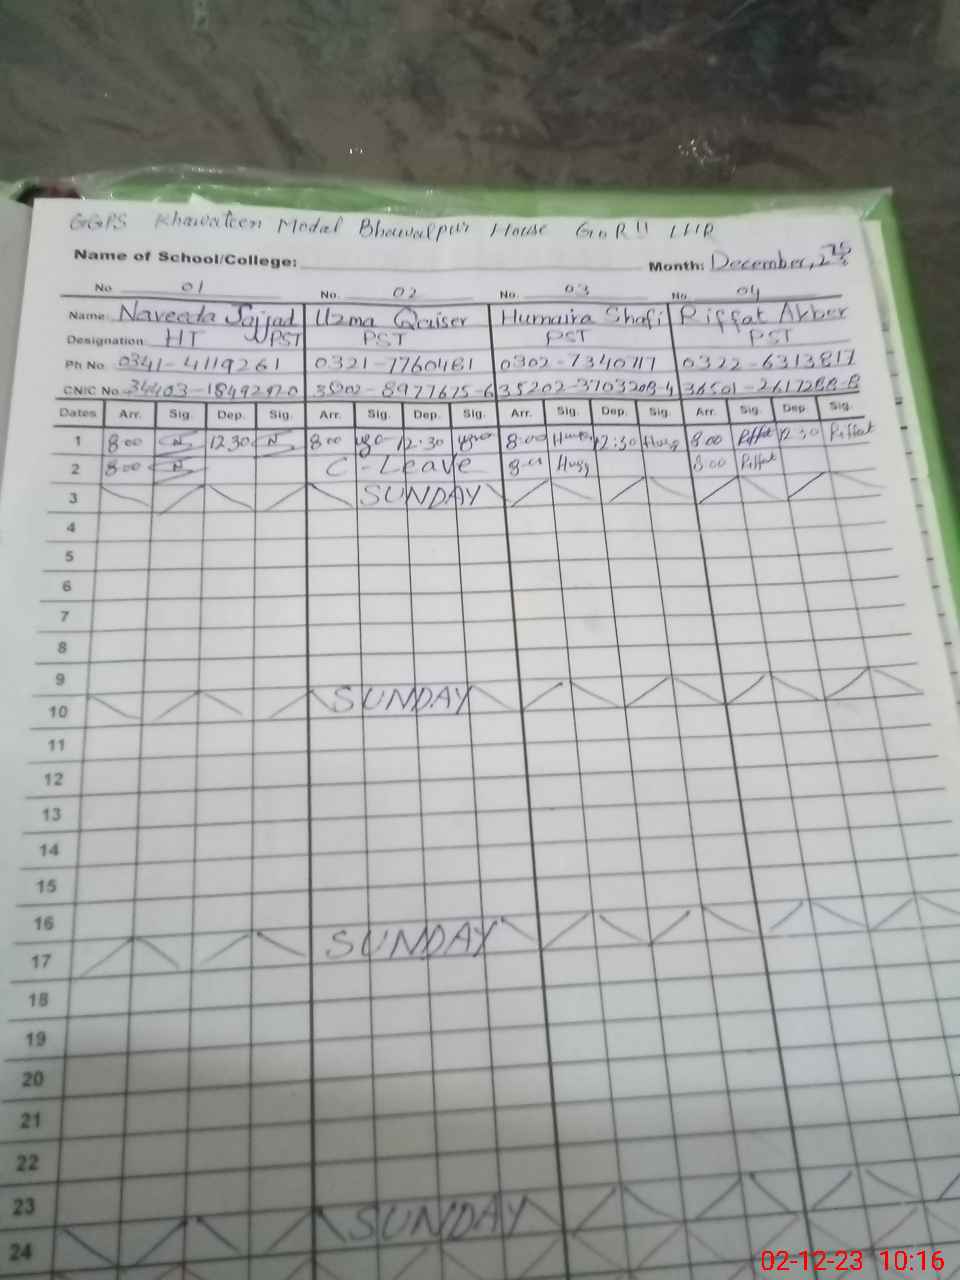 GGPS Khawateen Model Bhawalpur House GoR II LHR
Name of School/College: Month: December,
No. 01 No. 02 No. 03 No. 04
Name: Naveeda Sajjad Uzma Qaiser Humaira Shafi Riffat Akber
Designation: HT PST PST PST PST
Ph No. 0341-4119261 0321-7760481 0302-7340717 0322-6313817
CNIC No. 35202-3703208-4
Dates Arr. Sig. Dep. Sig. Arr. Sig. Dep. Sig. Arr. Sig. Dep. Sig. Arr. Sig. Dep. Sig.
1 8:00 12:30 8:00 12:30 8:00 12:30 8:00 Riffat 12:30 Riffat
2 8:00 C-Leave 8:00 8:00 Riffat
3 SUNDAY
4
5
6
7
8
9
10 SUNDAY
11
12
13
14
15
16
17 SUNDAY
18
19
20
21
22
23
24 SUNDAY
02-12-23 10:16